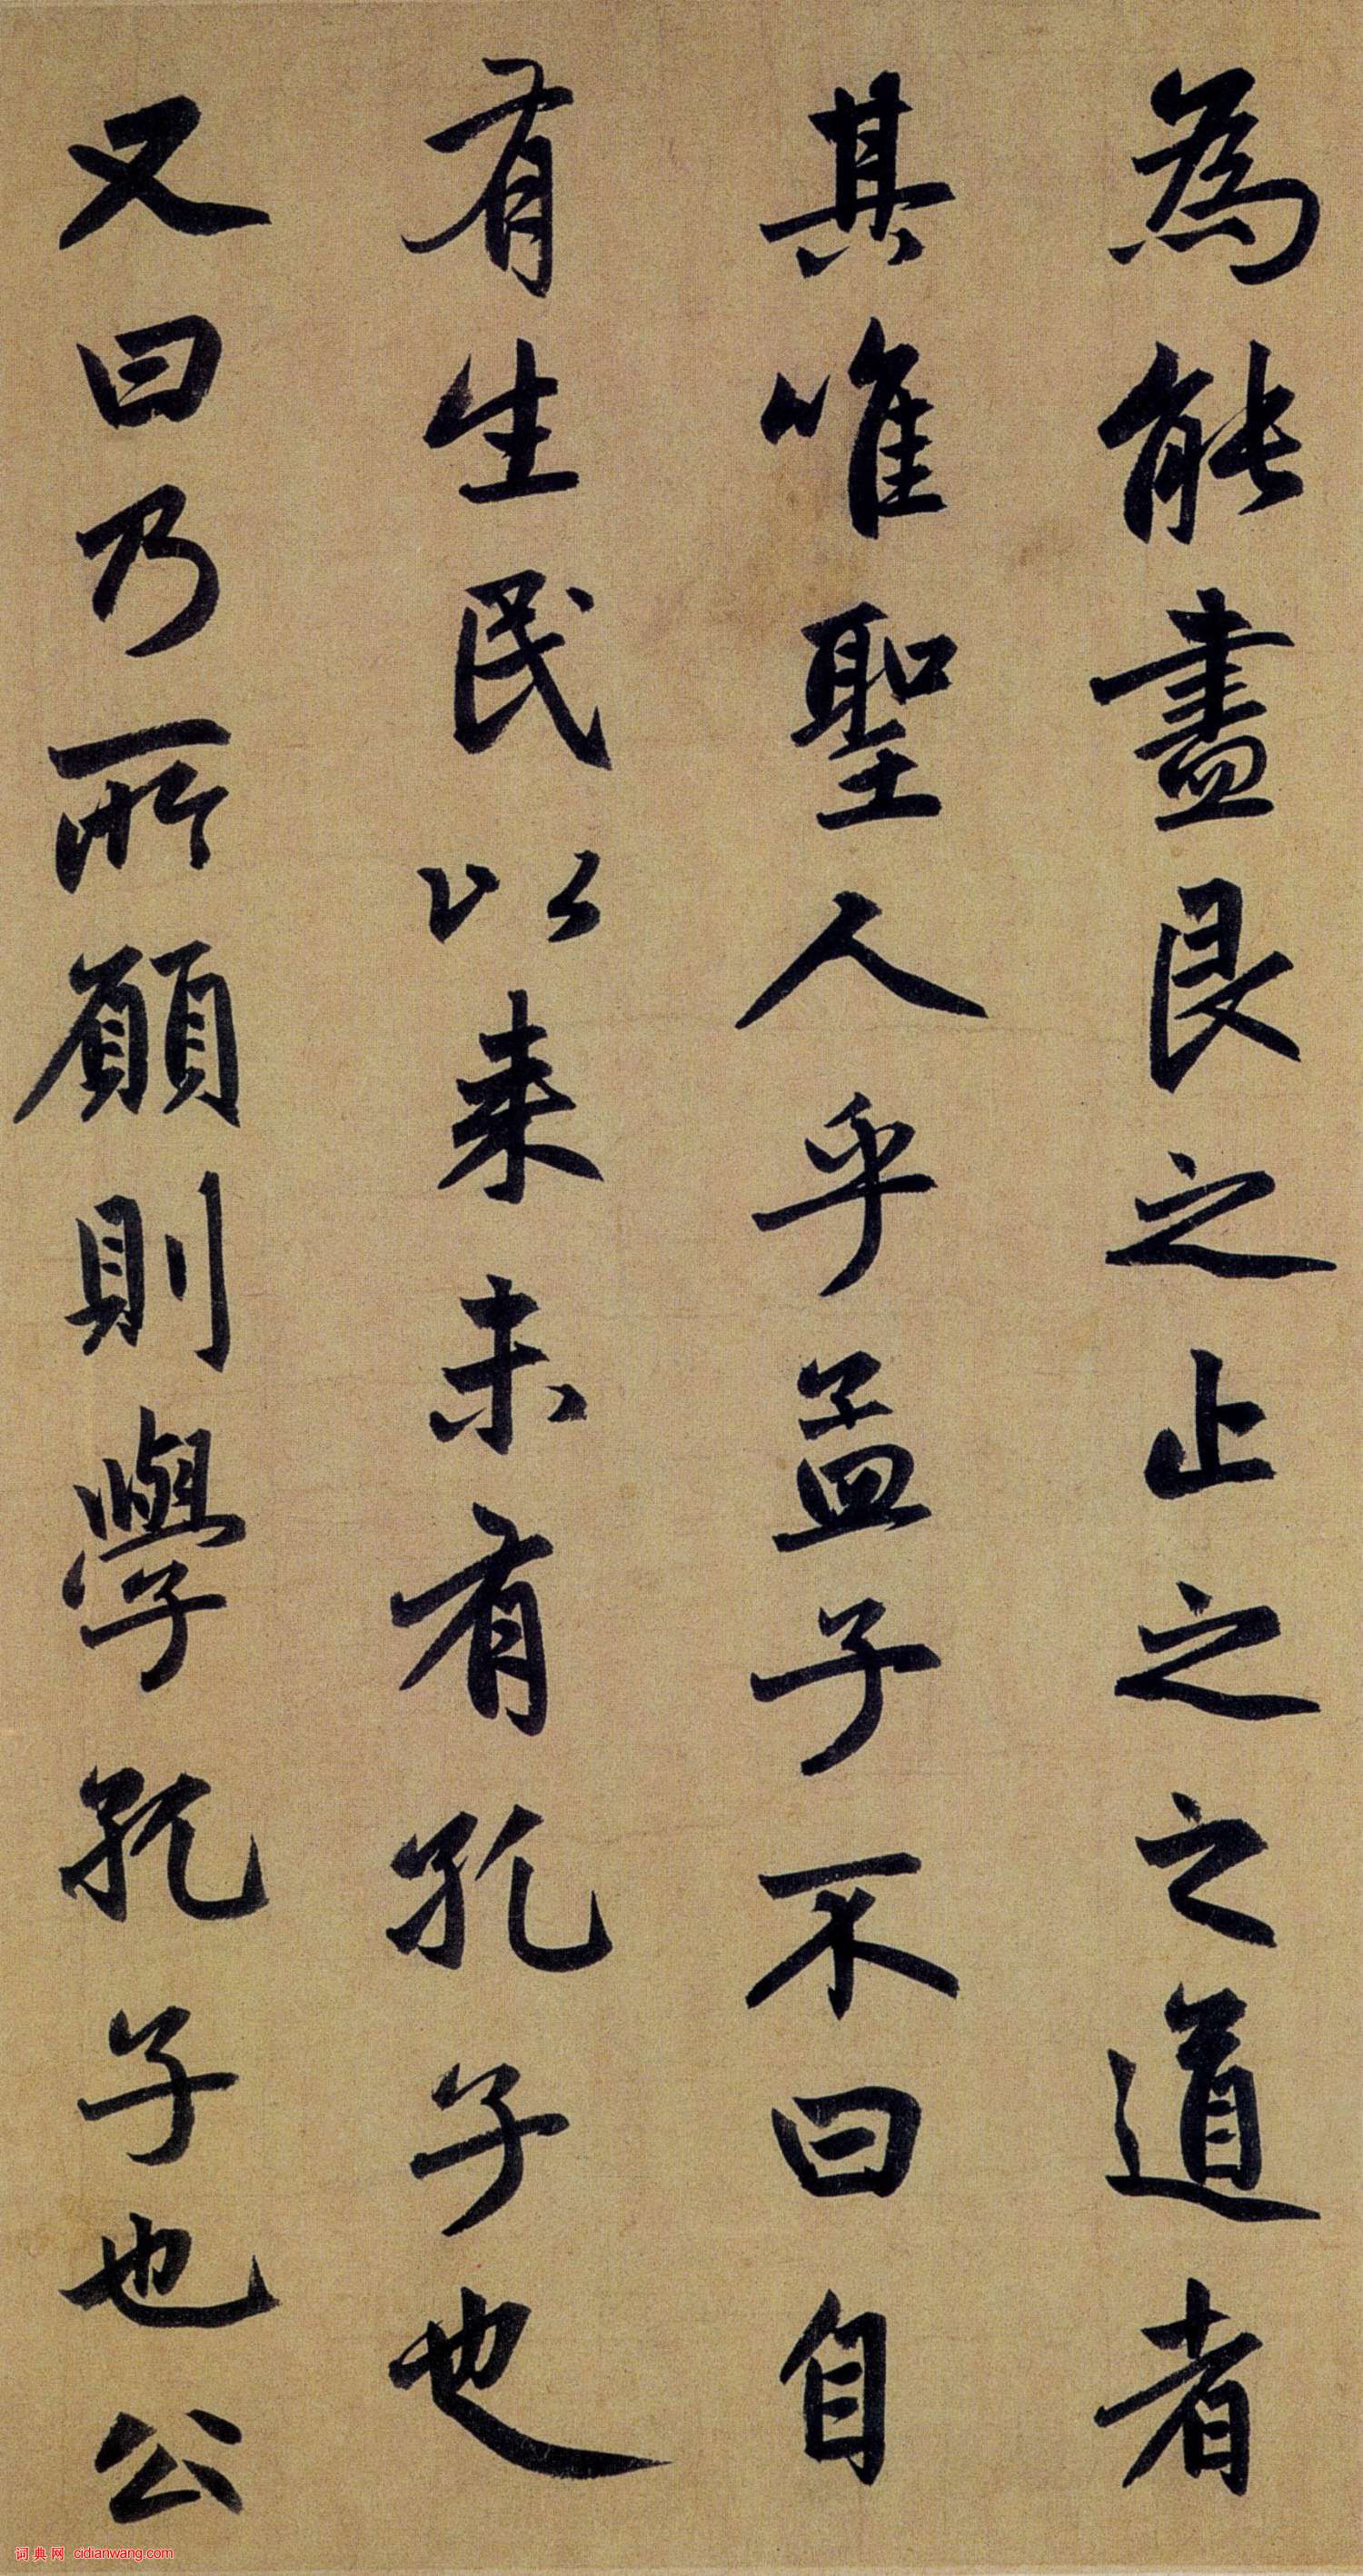 為能盡艮之止之之道者
其唯聖人乎孟子不曰自
有生民以来未有孔子也
又曰乃所願則學孔子也公
词典网 cidianwang.com